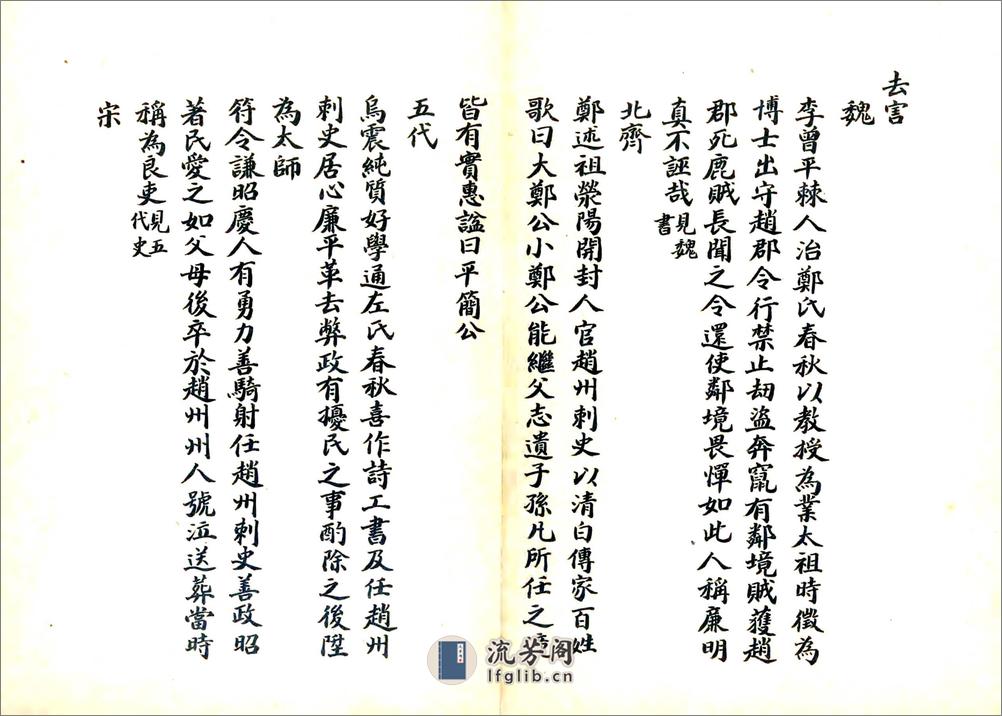 去害
魏
李曾平棘人治鄭氏春秋以教授為業太祖時徵為
博士出守趙郡令行禁止劫盜奔竄有鄰境賊獲趙
郡死鹿賊長聞之令還使鄰境畏憚如此人稱廉明
真不誣哉見魏書
北齊
鄭述祖滎陽開封人官趙州刺史以清白傳家百姓
歌曰大鄭公小鄭公能繼父志遺子孫凡所任之
皆有實惠謚曰平簡公
五代
烏震純質好學通左氏春秋喜作詩工書及任趙州
刺史居心廉平革去弊政有擾民之事酌除之後陞
為太師
符令謙昭慶人有勇力善騎射任趙州刺史善政昭
著民愛之如父母後卒於趙州州人號泣送葬當時
稱為良吏見五代史
宋
流芳阁
lfglib.cn